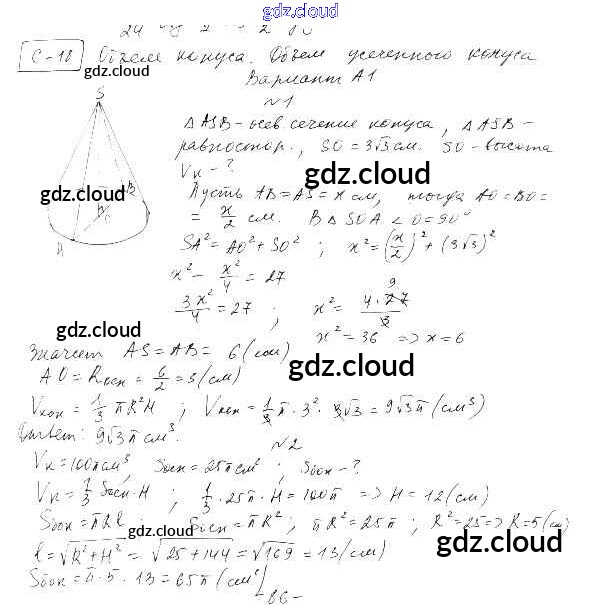 gdz.cloud
С-18 Объем конуса. Объем усеченного конуса
Вариант А1
gdz.cloud
№1
S
Δ ASB - осев. сечение конуса, Δ ASB -
равностор., SO = 3√3 см. SO - высота
gdz.cloud
Vк - ?
gdz.cloud
Пусть AB = AS = x см, тогда AO = BO =
= x/2 см. В Δ SOA ∠O = 90°
B
A
SA² = AO² + SO² ; x² = (x/2)² + (3√3)²
x² - x²/4 = 27
gdz.cloud
3x²/4 = 27 ; x² = 4·27/3 9
x² = 36 => x = 6
gdz.cloud
Значит AS = AB = 6 (см)
gdz.cloud
AO = Rосн = 6/2 = 3 (см)
Vкон = 1/3 πR²H ; Vкон = 1/3 π · 3² · 3√3 = 9√3π (см³)
Ответ: 9√3π см³.
gdz.cloud
№2
Vк = 100π см³, Sосн = 25π см² ; Sбок - ?
Vк = 1/3 Sосн · H ; 1/3 · 25π · H = 100π => H = 12 (см)
gdz.cloud
Sбок = πRl ; Sосн = πR² ; πR² = 25π ; R² = 25 => R = 5 (см)
gdz.cloud
l = √R² + H² = √25 + 144 = √169 = 13 (см)
gdz.cloud
Sбок = π · 5 · 13 = 65π (см²)
gdz.cloud